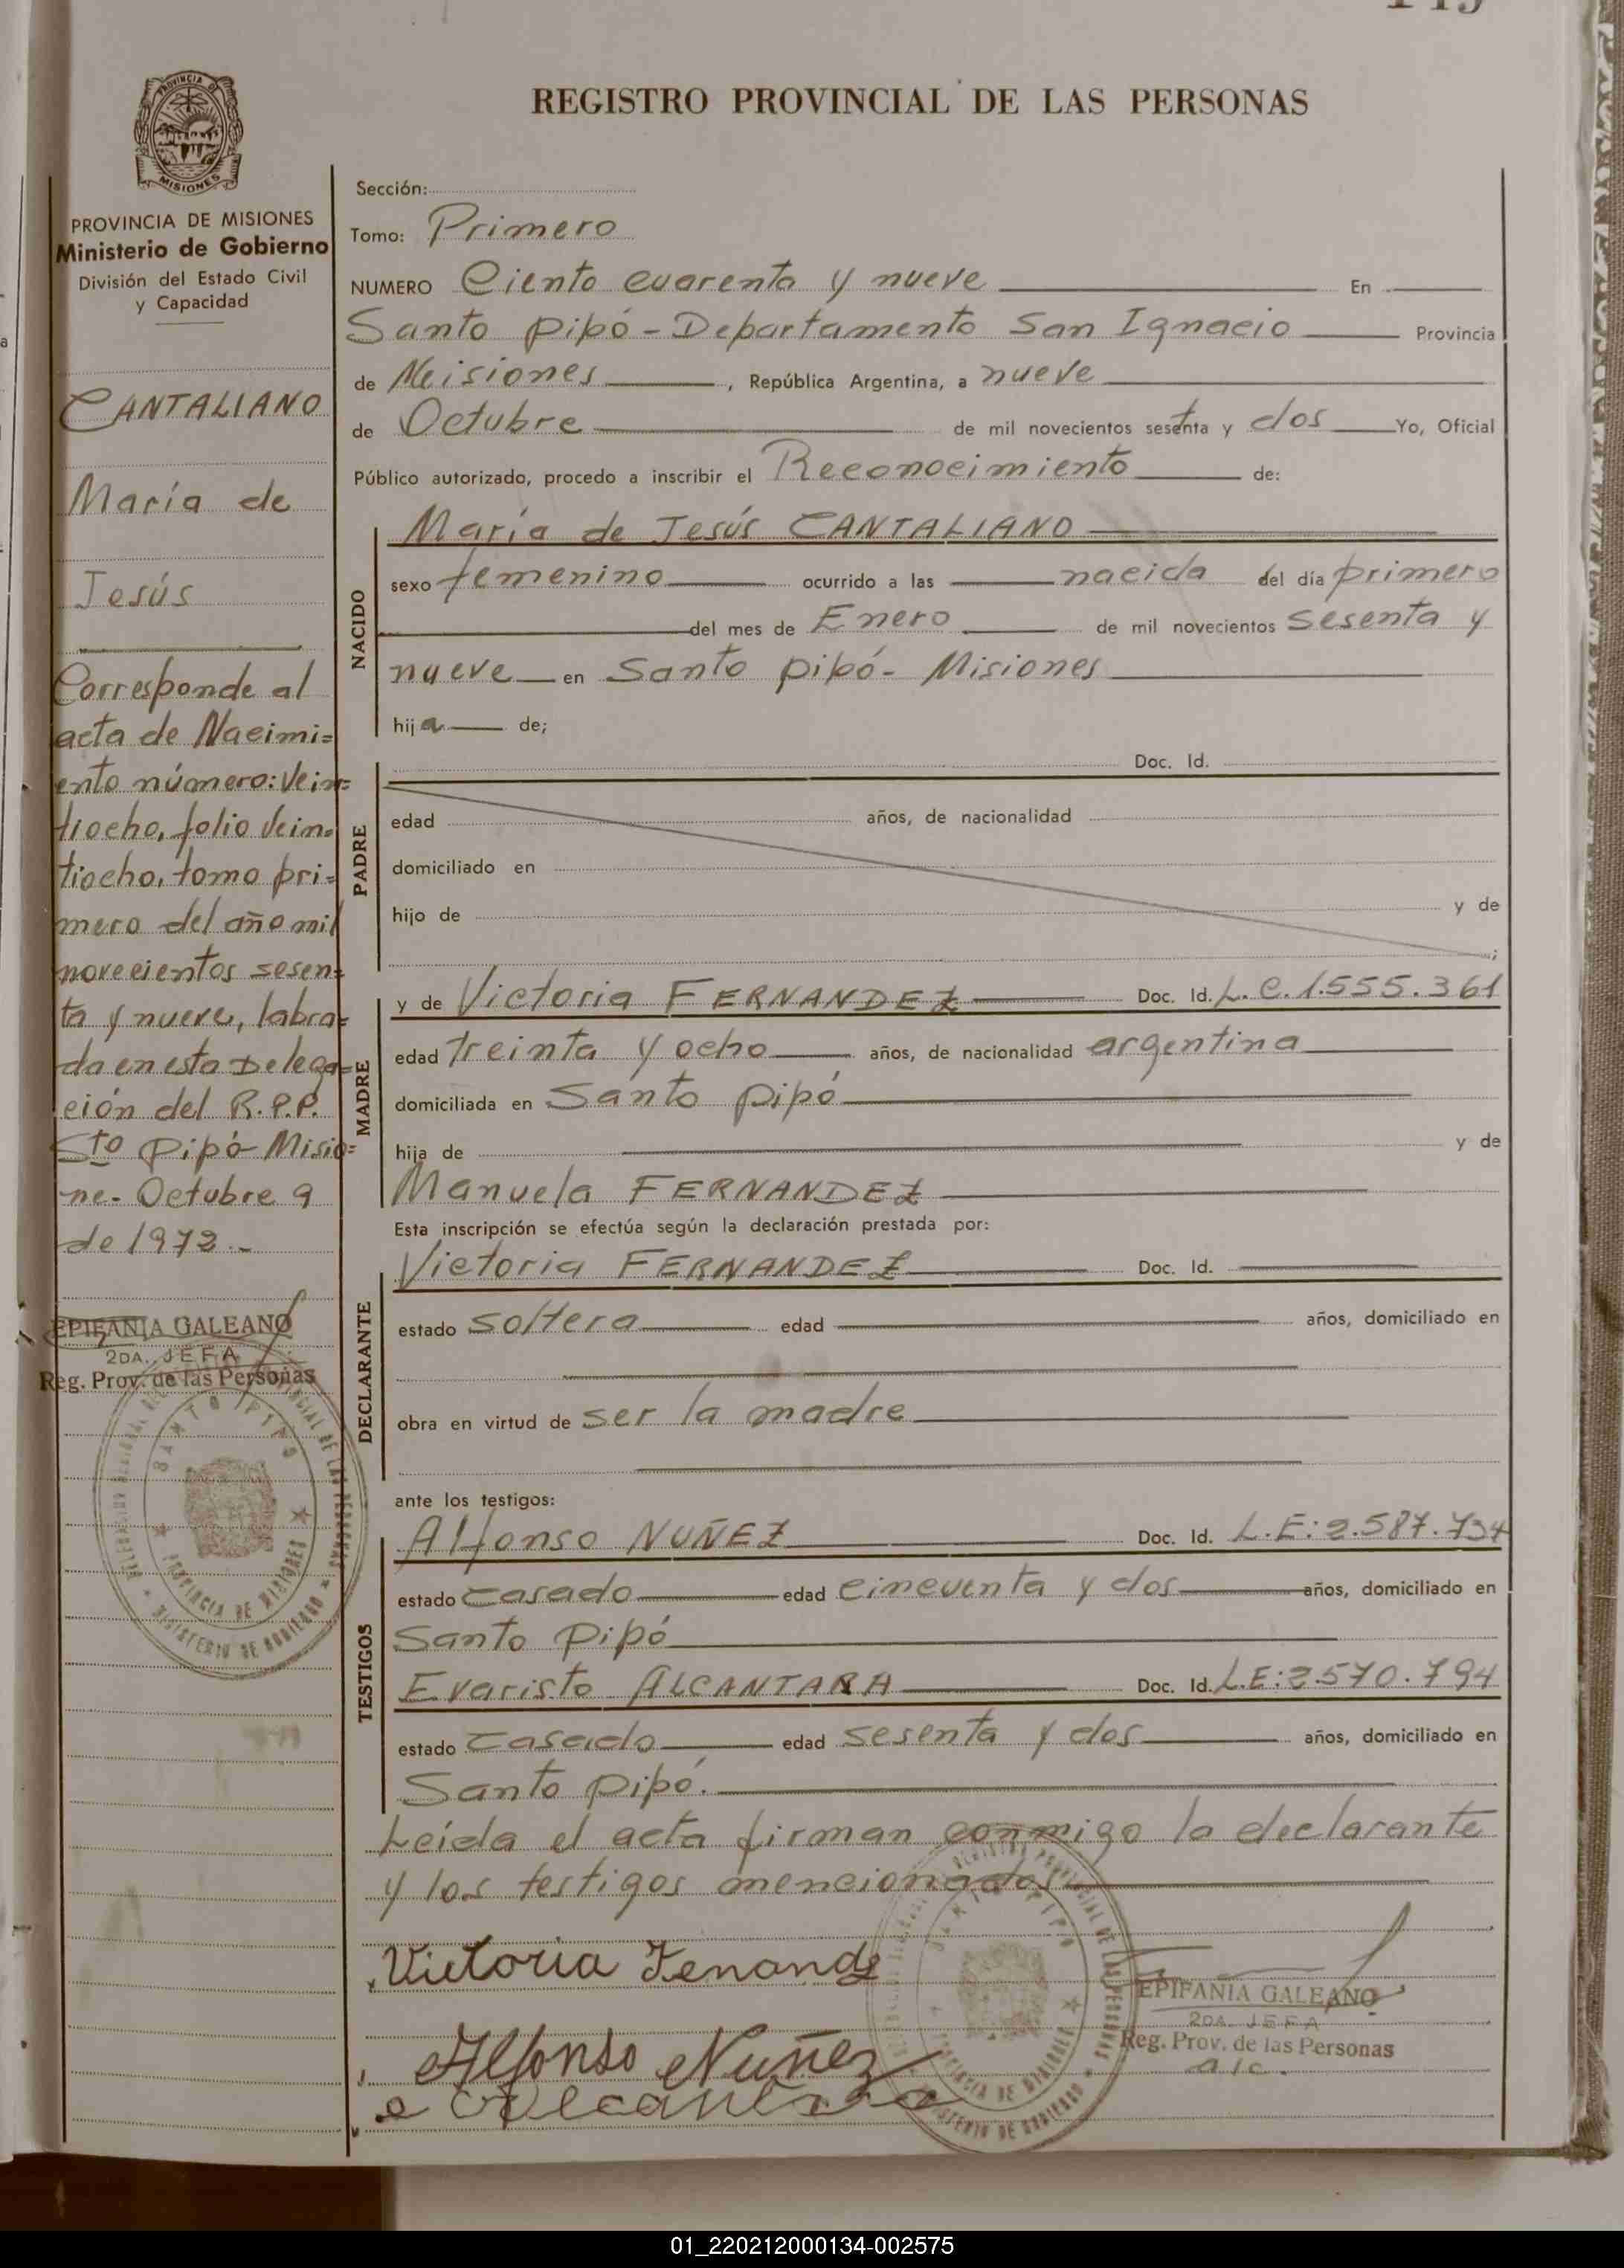 REGISTRO PROVINCIAL DE LAS PERSONAS
PROVINCIA DE
MISIONES
PROVINCIA DE MISIONES
Ministerio de Gobierno
División del Estado Civil
y Capacidad
CANTALIANO
María de
Jesús
Corresponde al
acta de Nacimi=
ento número: Vein=
tiocho, folio Vein=
tiocho, tomo pri=
mero del año mil
novecientos sesen=
ta y nueve, labra=
da en esta Delega=
ción del R.P.P.
Sto Pipó Misio=
ne- Octubre 9
de 1972.-
EPIFANIA GALEANO
2DA. JEFA
Reg. Prov. de las Personas
SANTO PIPO
PROVINCIA DE MISIONES
MINISTERIO DE GOBIERNO
Sección:
Tomo: Primero
NUMERO Ciento cuarenta y nueve En
Santo Pipó - Departamento San Ignacio Provincia
de Misiones, República Argentina, a nueve
de Octubre de mil novecientos sesenta y dos Yo, Oficial
Público autorizado, procedo a inscribir el Reconocimiento de:
NACIDO
María de Jesús CANTALIANO
sexo femenino ocurrido a las nacida del día primero
del mes de Enero de mil novecientos sesenta y
nueve en Santo Pipó - Misiones
hija de;
PADRE
Doc. Id.
edad años, de nacionalidad
domiciliado en
hijo de y de
;
MADRE
y de Victoria FERNANDEZ Doc. Id. L.C. 1.555.361
edad treinta y ocho años, de nacionalidad argentina
domiciliada en Santo Pipó
hija de y de
Manuela FERNANDEZ
Esta inscripción se efectúa según la declaración prestada por:
DECLARANTE
Victoria FERNANDEZ Doc. Id.
estado soltera edad años, domiciliado en
obra en virtud de ser la madre
ante los testigos:
TESTIGOS
Alfonso NUÑEZ Doc. Id. L.E: 2.587.734
estado casado edad cincuenta y dos años, domiciliado en
Santo Pipó
Evaristo ALCANTARA Doc. Id. L.E: 2.570.794
estado casado edad sesenta y dos años, domiciliado en
Santo Pipó.
Leída el acta firman conmigo la declarante
y los testigos mencionados
Victoria Fenande
Alfonso Nuñez
e Alcantara
EPIFANIA GALEANO
2DA. JEFA
Reg. Prov. de las Personas
a/c.
01_220212000134-002575